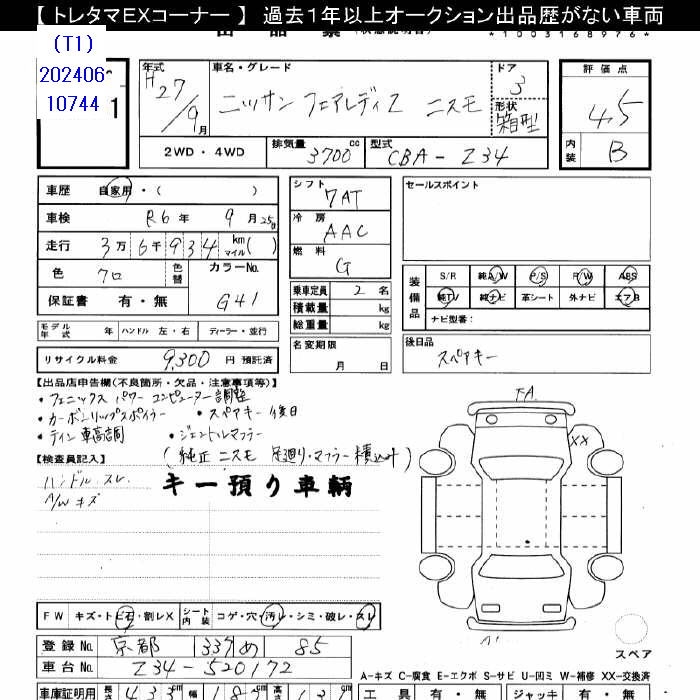 【 トレタマEXコーナー 】 過去1年以上オークション出品歴がない車両
*1003168976*
(T1)
202406
10744
1
年式
H27/9月
車名・グレード
ニッサン フェアレディZ ニスモ
ドア
3
形状
箱型
評価点
4.5
内装
B
2WD・4WD
排気量
3700cc
型式
CBA-Z34
車歴 自家用・( )
車検 R6年 9月25日
走行 3万6千934 km マイル( )
色 クロ 色替
カラーNo.
G41
保証書 有・無
シフト
7AT
冷房
AAC
燃料
G
乗車定員 2名
積載量 kg
総重量 kg
名変期限
月 日
セールスポイント
装備品
S/R 純A/W P/S P/W ABS
純TV 純ナビ 革シート 外ナビ エアB
ナビ型番:
モデル年式 年 ハンドル 左・右 ディーラー・並行
リサイクル料金 9,300 円 預託済
後日品
スペアキー
【出品店申告欄(不良箇所・欠品・注意事項等)】
・フェニックス パワー コンピューター調整
・カーボンリップスポイラー ・スペアキー後日
・テイン車高調 ・ジェントルマフラー
(純正 ニスモ 足廻り・マフラー積込付)
【検査員記入】
ハンドル スレ
A/W キズ
キー預り車輌
XX
FW キズ・トビ石・割レX
シート内装 コゲ・穴・汚レ・シミ・破レ・スレ
登録No. 京都 339 め 85
車台No. Z34-520172
スペア
A-キズ C-腐食 E-エクボ S-サビ U-凹ミ W-補修 XX-交換済
車庫証明用 長さ 433cm 幅 187 高さ 13
工具 有・無 ジャッキ 有・無